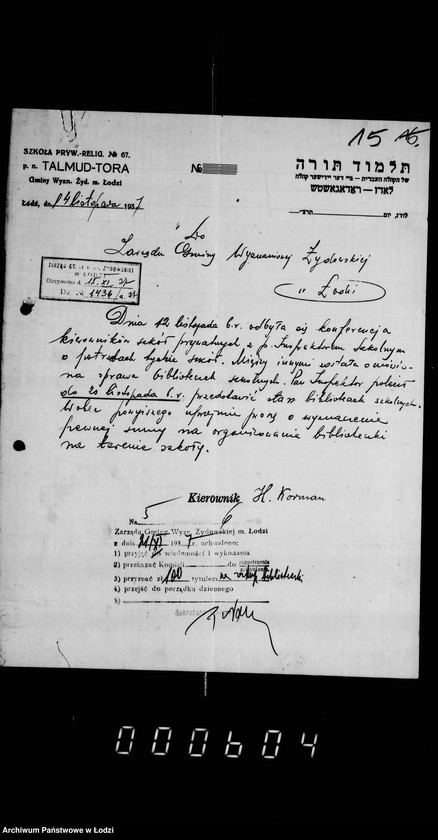 15
SZKOŁA PRYW.-RELIG. № 67.
p. n. TALMUD-TORA
Gminy Wyzn. Żyd. m. Łodzi
Łódź, dn. 14 listopada 1937
№
תלמוד תורה
של הקהלה העברית — ביי דער יידישער קהלה
לאדז
לודז, יום
Do
Zarządu Gminy Wyznaniowej Żydowskiej
w Łodzi
ZARZĄD GMINY WYZN. ŻYDOWSKIEJ
w ŁODZI
Otrzymano d. 17. XI. 37
Dz. № 1436
Dnia 12 listopada b.r. odbyła się konferencja
kierowników szkół prywatnych z p. Inspektorem szkolnym
o potrzebach tychże szkół. Między innymi została omówio-
na sprawa bibliotek szkolnych. Pan Inspektor polecił
do 20 listopada b.r. przedstawić stan bibliotek szkolnych.
Wobec powyższego uprzejmie proszę o wyznaczenie
pewnej sumy na zorganizowanie biblioteki
na terenie szkoły.
Kierownik H. Korman
Na 5
Zarządu Gminy Wyzn. Żydowskiej m. Łodzi
z dnia 21/XI 1937 r. uchwalono:
1) przyjąć do wiadomości i wykonania
2) przekazać Komisji do rozpatrzenia
3) przyznać zł 100 tytułem na zakup biblioteczki
4) przejść do porządku dziennego
5)
Sekretarz
000604
Archiwum Państwowe w Łodzi